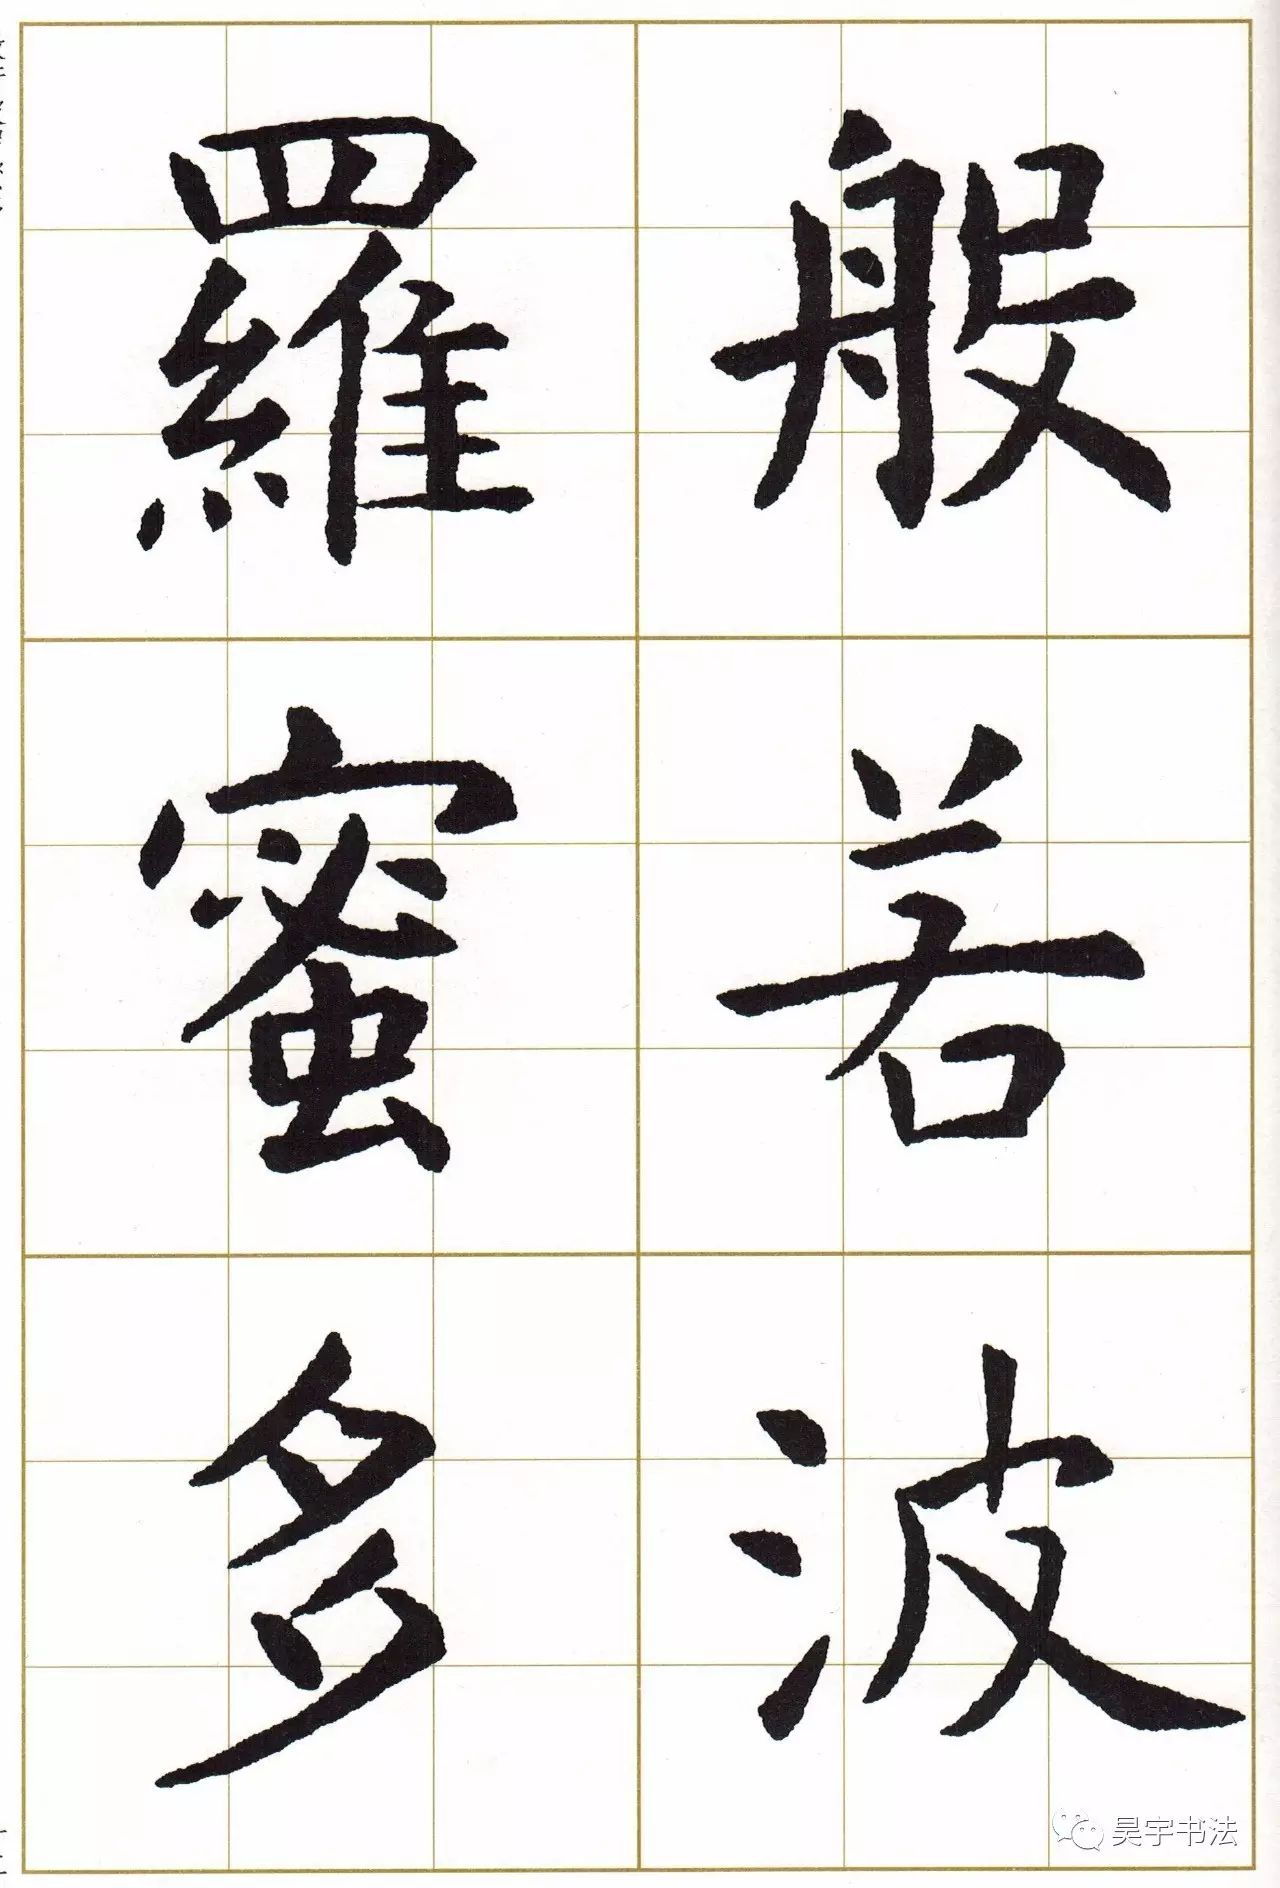 般若波
羅蜜多
昊宇书法